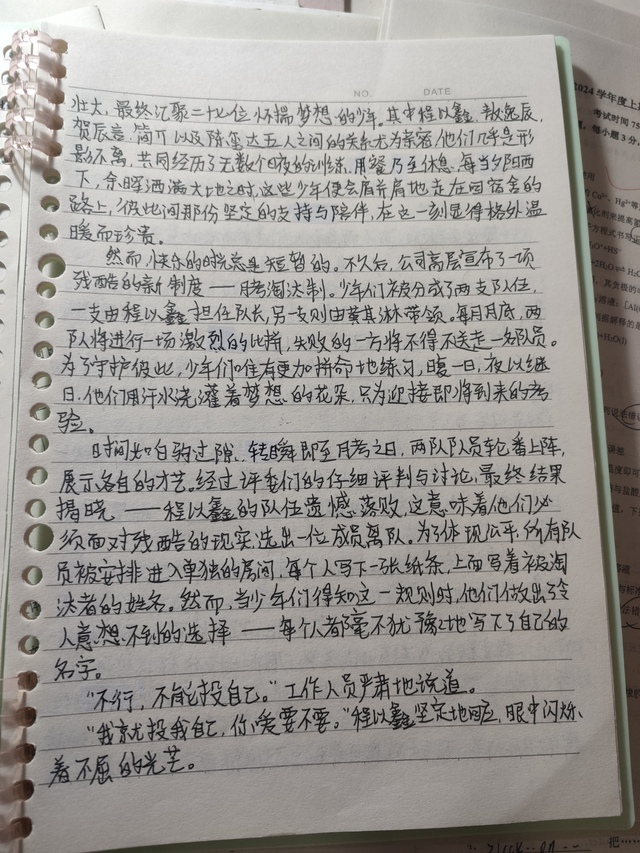 NO. DATE
壮大，最终汇聚二十七位怀揣梦想的少年。其中程以鑫、敖逸辰、
贺辰言、简亓以及陈玺达五人之间的关系尤为亲密，他们几乎是形
影不离，共同经历了无数个日夜的训练、用餐乃至休息。每当夕阳西
下，余晖洒满大地之时，这些少年便会肩并肩地走在回宿舍的
路上，彼此间那份坚定的支持与陪伴，在这一刻显得格外温
暖而珍贵。
然而，快乐的时光总是短暂的。不久后，公司高层宣布了一项
残酷的新制度——月考淘汰制。少年们被分成了两支队伍，
一支由程以鑫担任队长，另一支则由黄其淋带领。每月月底，两
队将进行一场激烈的比拼，失败的一方将不得不送走一名队员。
为了守护彼此，少年们唯有更加拼命地练习，日复一日，夜以继
日，他们用汗水浇灌着梦想的花朵，只为迎接即将到来的考
验。
时间如白驹过隙，转瞬即至月考之日，两队队员轮番上阵，
展示各自的才艺。经过评委们的仔细评判与讨论，最终结果
揭晓——程以鑫的队伍遗憾落败，这意味着他们必
须面对残酷的现实，选出一位成员离队。为了体现公平，所有队
员被安排进入单独的房间，每个人写下一张纸条，上面写着被淘
汰者的姓名。然而，当少年们得知这一规则时，他们做出了令
人意想不到的选择——每个人都毫不犹豫地写下了自己的
名字。
“不行，不能投自己。”工作人员严肃地说道。
“我就投我自己，你爱要不要。”程以鑫坚定地回应，眼中闪烁
着不屈的光芒。
2024学年度上
考试时间75
每小题3分